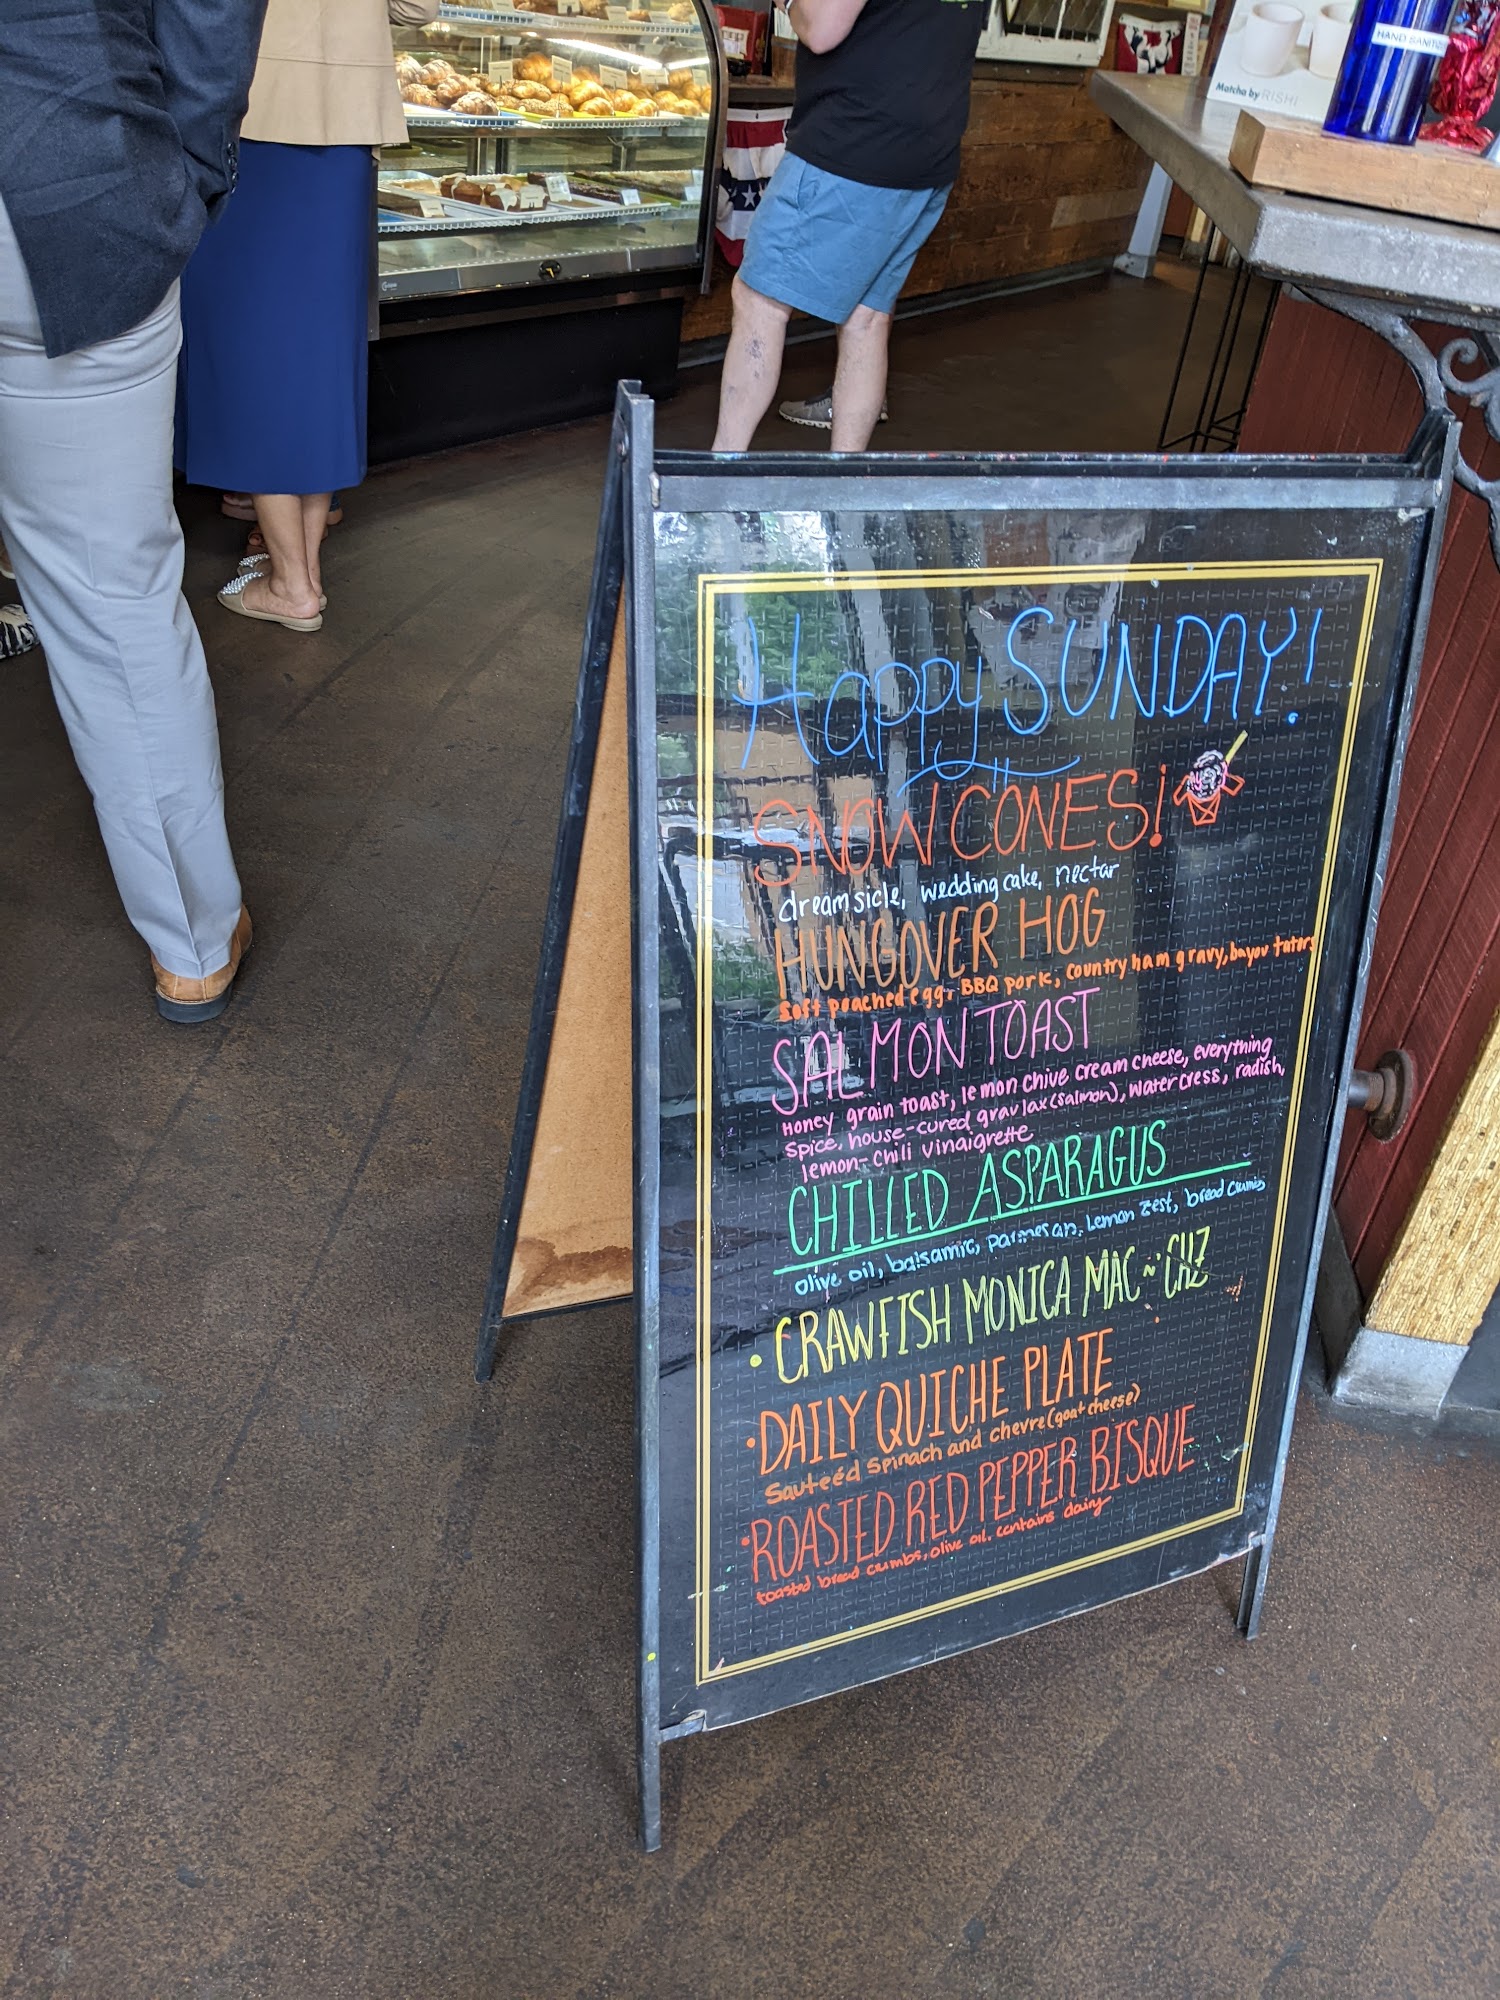 Matcha by RISHI
HAND SANITIZ
Happy SUNDAY!
SNOWCONES!
dreamsicle, wedding cake, nectar
HUNGOVER HOG
Soft poached egg, BBQ pork, country ham gravy, bayou taters
SALMON TOAST
Honey grain toast, lemon chive cream cheese, everything
spice, house-cured gravlax (salmon), watercress, radish,
lemon-chili vinaigrette
CHILLED ASPARAGUS
olive oil, balsamic, parmesan, lemon zest, bread crumbs
• CRAWFISH MONICA MAC ~N' CHZ
• DAILY QUICHE PLATE
Sauteéd spinach and chevre (goat cheese)
• ROASTED RED PEPPER BISQUE
toasted bread crumbs, olive oil, contains dairy